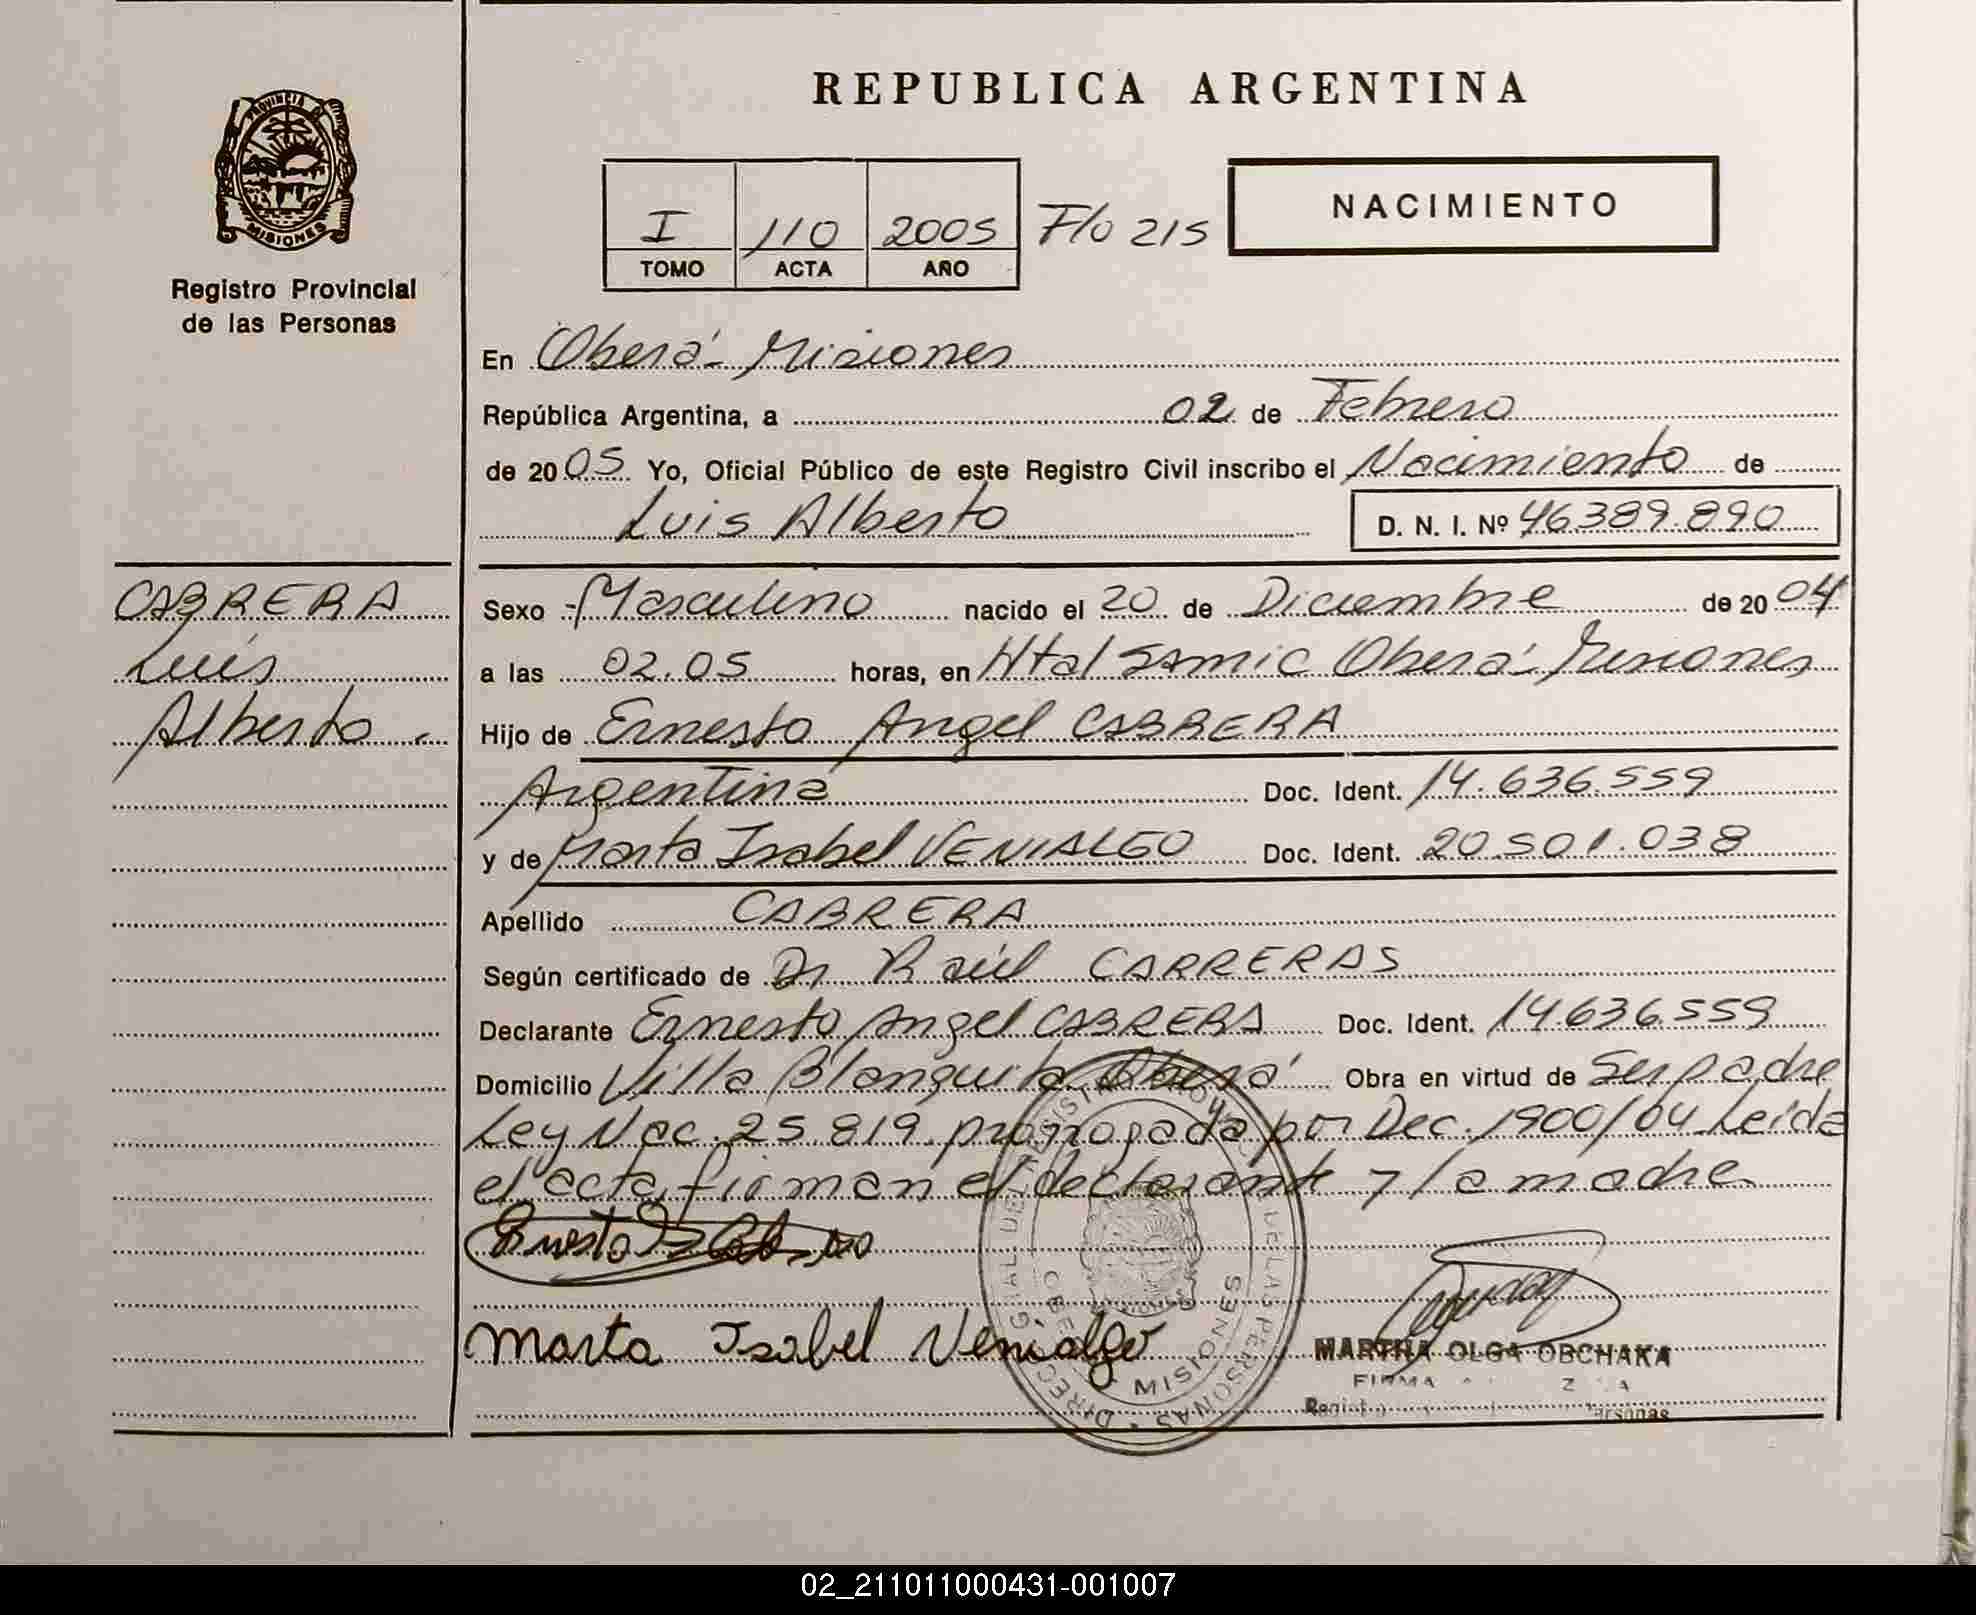 REPUBLICA ARGENTINA
PROVINCIA DE
MISIONES
Registro Provincial
de las Personas
I 110 2005 F/o 215
TOMO ACTA AÑO
NACIMIENTO
En Oberá - Misiones
República Argentina, a 02 de Febrero
de 2005 Yo, Oficial Público de este Registro Civil inscribo el Nacimiento de
Luis Alberto D. N. I. Nº 46.389.890
CABRERA
Luis
Alberto.
Sexo Masculino nacido el 20 de Diciembre de 2004
a las 02.05 horas, en Htal SAMIC Oberá - Misiones
Hijo de Ernesto Angel CABRERA
Argentina Doc. Ident. 14.636.559
y de Marta Isabel VENIALGO Doc. Ident. 20.501.038
Apellido CABRERA
Según certificado de Dr Raúl CARRERAS
Declarante Ernesto Angel CABRERA Doc. Ident. 14.636.559
Domicilio Villa Blanquita Oberá Obra en virtud de Ser padre
Ley Nac. 25.819 prorrogada por Dec. 1900/04 Leída
el acta, firman el declarante y la madre
Ernesto
Marta Isabel Venialgo
MISIONES
MARTHA OLGA OBCHAKA
FIRMA
02_211011000431-001007